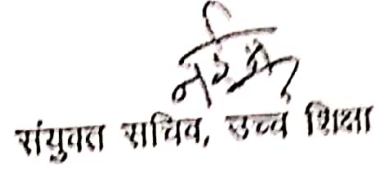 संयुक्त सचिव, उच्च शिक्षा